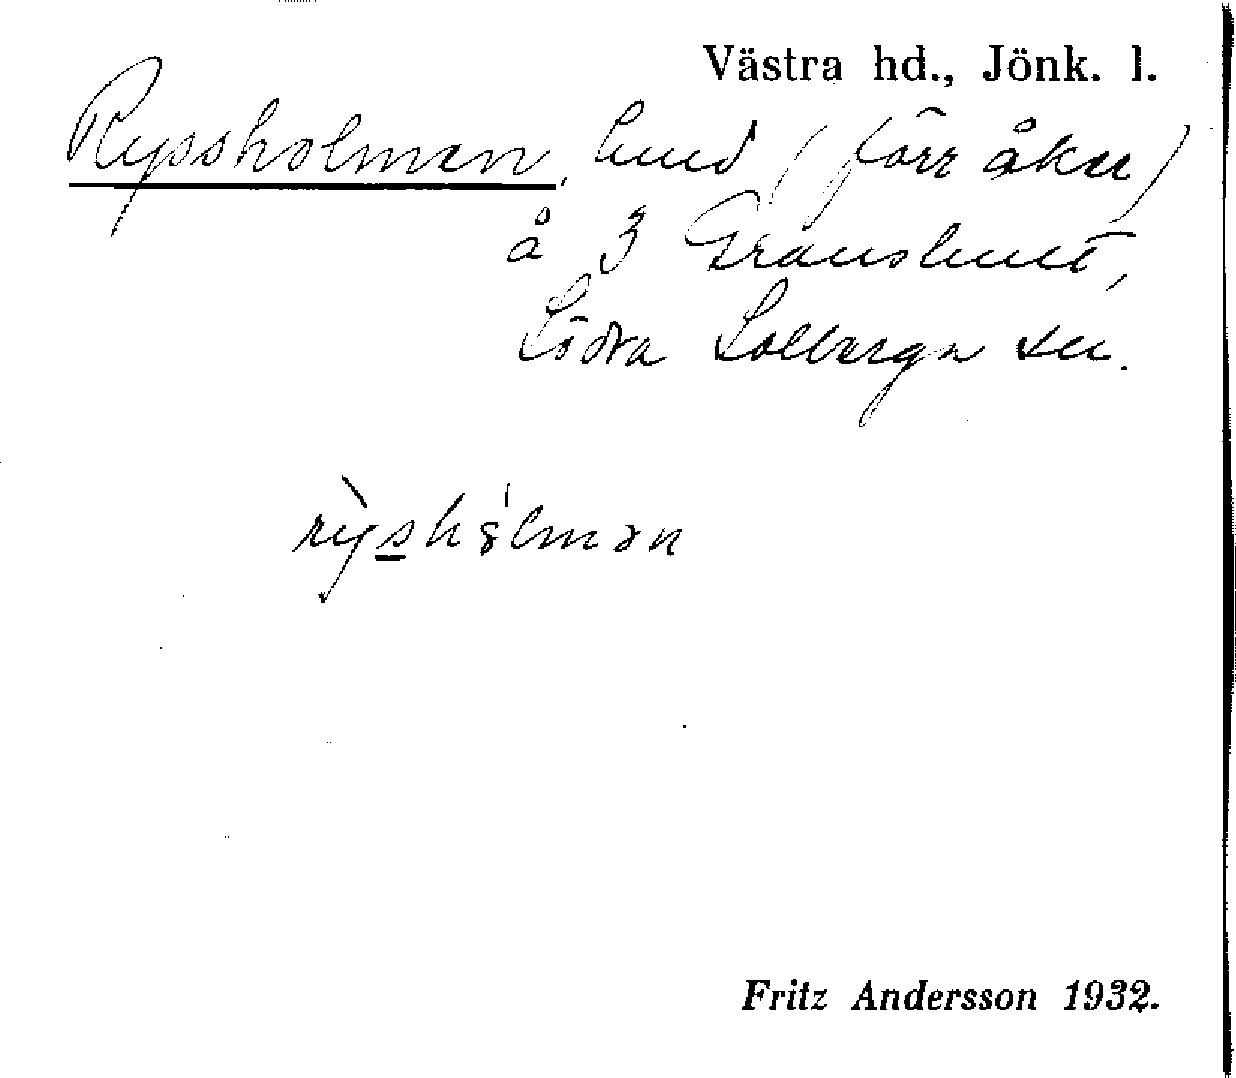 Västra hd., Jönk. l.
Ryssholmen, lund (förr åker)
å 3 Granshult,
Södra Solberga sn.
rỳshå̀lmən
Fritz Andersson 1932.